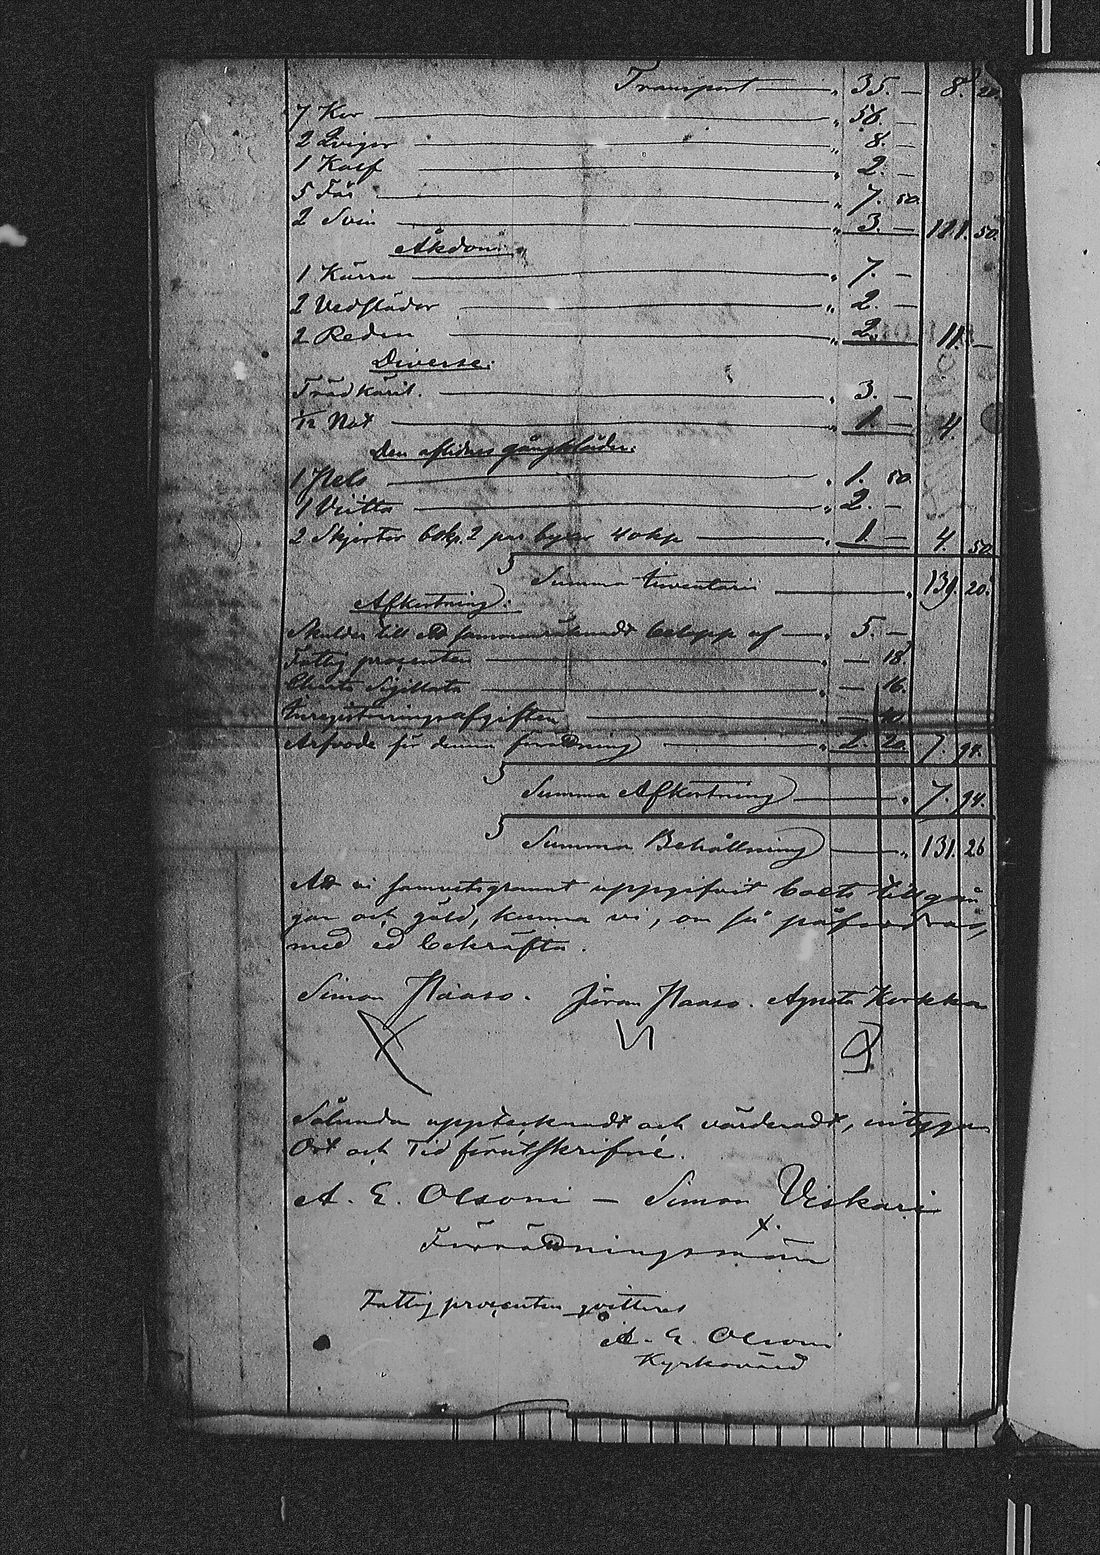 Transport — „ 35. — 8. 20
7 Kor — „ 56. —
2 Qvigor — „ 8. —
1 Kalf — „ 2. —
5 Får — „ 7. 50.
2 Svin — „ 3. — 111. 50.
Åkdon:
1 Kärra — „ 7. —
2 Vedslädor — „ 2. —
2 Reden — „ 2. — 11. —
Diverse:
Trädkäril. — „ 3. —
1/12 Not — „ 1. — 4.
Den aflidnes gångkläder:
1 Pels — „ 1. 50.
1 — „ 2. —
2 Skjortor 60kp. 2 par byxor 40kp — „ 1. — 4. 50.
Summa Inventarii — „ 139. 20.
Afkortning:
Skulder till ett sammanräknadt belopp af — „ 5. —
Fattig procenten — „ — 18
Charta Sigillata — „ — 16.
Inregistreringsafgiften — „ — 40
Arfvode för denna förrättning — „ 2. 20. 7. 94.
Summa Afkortning — „ 7. 94.
Summa Behållning — „ 131. 26
Att vi samvetsgrannt uppgifvit boets tillgån
gar och gäld, kunna vi, om så påfordras,
med ed bekräfta.
Simon Haaso. Jöran Haaso. Agneta Korkka
Sålunda uppteknadt och värderadt, intyga
Ort och Tid förutskrifne.
A. E. Olsoni — Simon Viskari
X.
Förrättningsmän
Fattig procenten qvitteras
A. E. Olsoni
Kyrkovärd